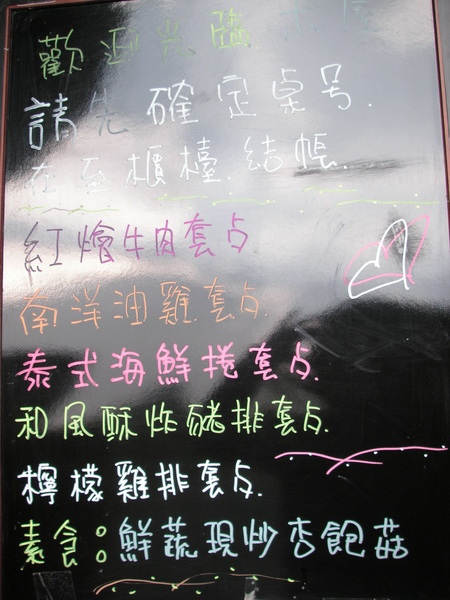 歡迎光臨
請先確定桌号.
在至櫃檯.結帳.
紅燴牛肉套点
南洋油雞套点.
泰式海鮮捲套点.
和風酥炸豬排套点.
檸檬雞排套点.
素食:鮮蔬現炒杏飽菇